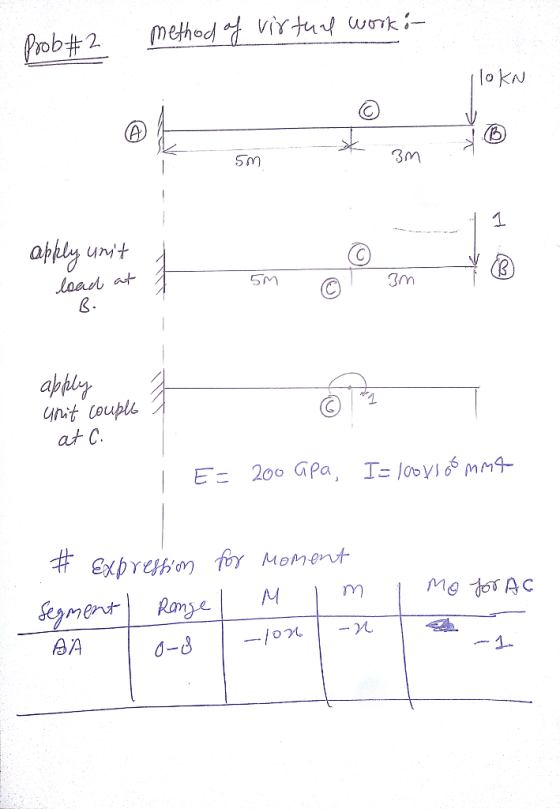 Prob#2 Method of virtual work:-
10 KN
Ⓒ
Ⓐ Ⓑ
5m 3m
1
apply unit
load at
B.
Ⓒ
5m Ⓒ 3m Ⓑ
apply
unit couple
at C.
Ⓒ 1
E = 200 GPa, I = 100×10⁶ mm4
# Expression for Moment
Segment Range M m Mθ for AC
BA 0-8 -10x -x -1